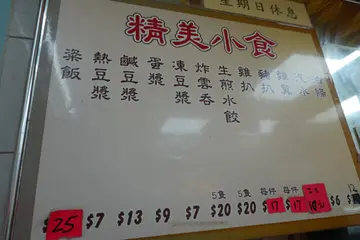 星期日休息
精美小食
粢飯
熱豆漿
鹹豆漿
蛋漿
凍豆漿
炸雲吞
生煎水餃
雞扒
豬扒
雞翼
5隻
5隻
每件
每件
$25
$7
$13
$9
$7
$20
$20
$17
$17
$6